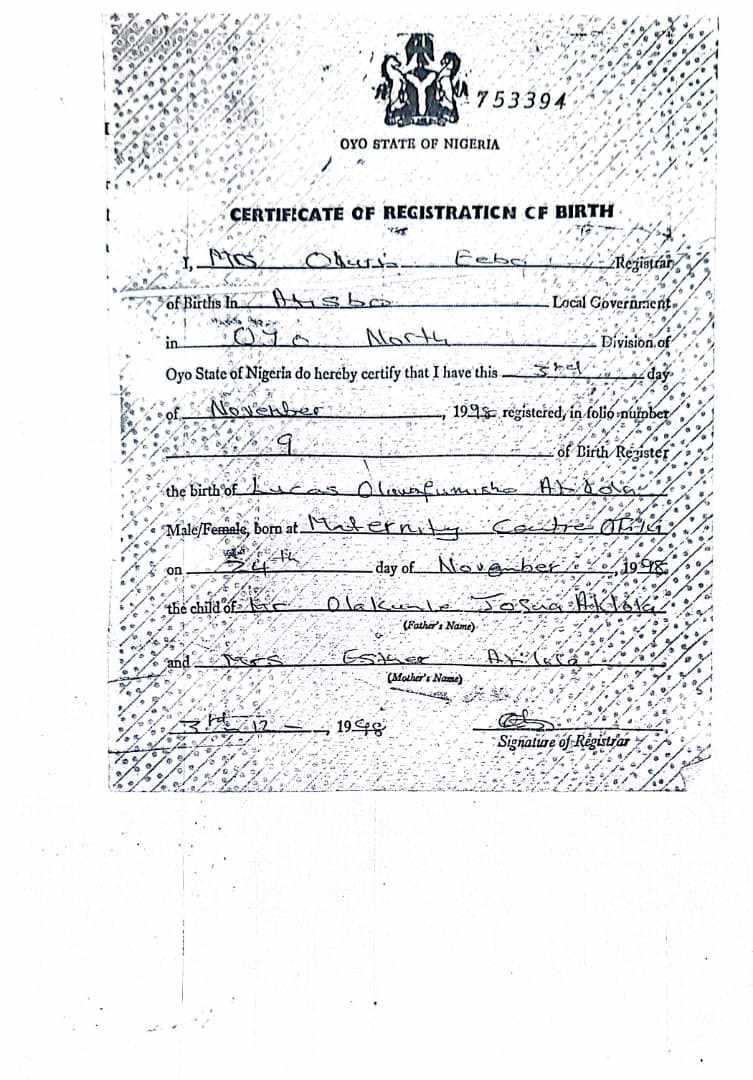 753394
OYO STATE OF NIGERIA
CERTIFICATE OF REGISTRATION OF BIRTH
I, Mrs Registrar
of Births In Atisbo Local Government
in Oyo North Division of
Oyo State of Nigeria do hereby certify that I have this 3rd day
of November, 1998 registered, in folio number
9 of Birth Register
the birth of Lucas Akilola
Male/Female, born at Maternity Centre
on 24th day of November 1998
the child of Mr Olakunle Josua Akilola
(Father's Name)
and Mrs Esther Akilola
(Mother's Name)
3rd 12 -, 1998
Signature of Registrar